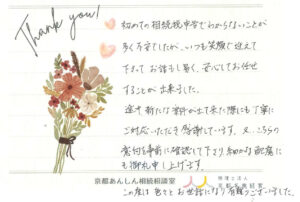 Thank you!
初めての相続税申告でわからないことが
多く不安でしたが、いつも笑顔で迎えて
下さって お話もし易く、安心してお任せ
することが出来ました。
途中 新たな資料が出て来た際にも丁寧に
ご対応いただき感謝しています。又、こちらの
意向を事前に確認して下さり、細かな配慮に
も御礼申し上げます。
京都あんしん相続相談室
税理士法人
この度は色々とお世話になり有難うございました。